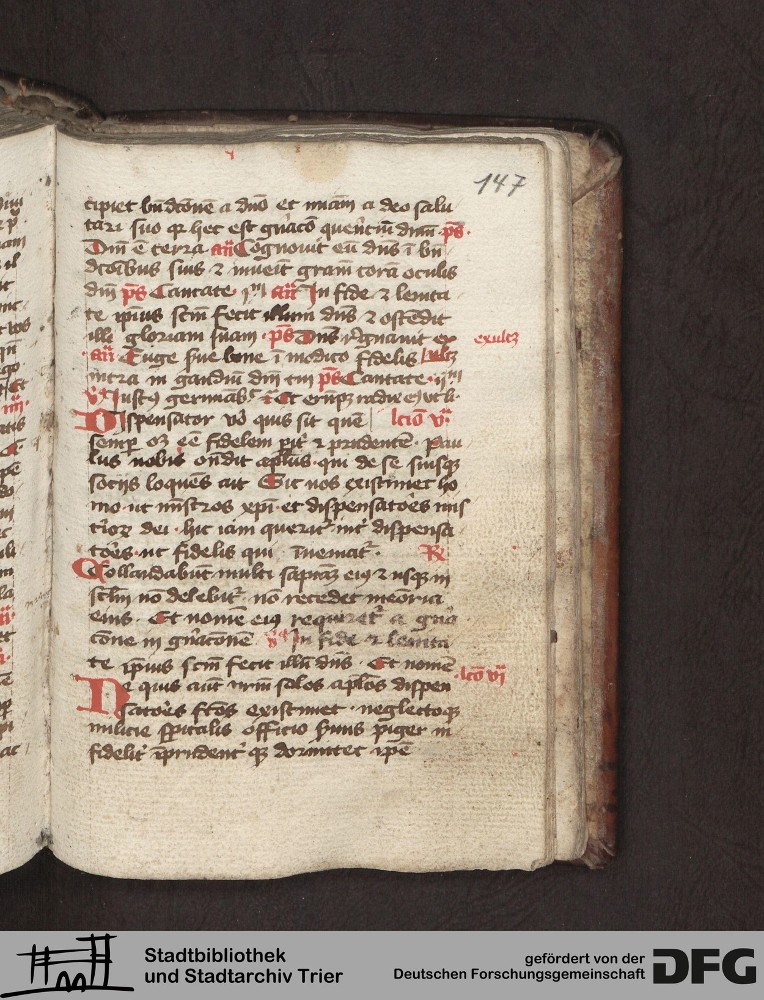 147
cipiet bndcōnē a dn̄o et mīam a deo salu
tari suo q̄ hec est gn̄acō querētiū dn̄m · ps̄ ·
Dn̄i ē terra an̄ Cognouit eū dn̄s ī bn̄
dcōibus suis ⁊ inueīt gram corā oculis
dn̄i ps̄ Cantate · an̄ In fide ⁊ lenita
te ip̄ius scm̄ fecit illum dn̄s ⁊ ostēdit
illi gloriam suam · ps̄ Dn̄s regnauit ex
exultꝫ
an̄ Euge s̄ue bone ī modico fidelis
intra in gaudiū dn̄i tui ps̄ Cantate ·
Justꝰ germīabit Et
Dispensator vō quis sit quē lctiō v
semꝑ oꝫ eē fidelem ⁊ prudentē · Pau
lus nobis on̄dit apl̄us · qui de se suisqꝫ
socijs loquēs ait Sic nos existimet ho
mo · ut mīstros xp̄i · et dispensatōes mis
tioꝝ dei · hic iam querit᷑ int̄ dispensa
tōes · ut fidelis quis īueniat᷑ · R
Collaudabūt multi sapiam eiꝰ ⁊ usqꝫ in
sclm̄ nō delebit᷑ · nō recedet meōria
eius · Et nomē eiꝰ requiret᷑ a gn̄a
cōne in gn̄acōnē v̄s In fide ⁊ lenita
te ip̄ius scm̄ fecit illū dn̄s · Et nomē
lcō vi
Ne quis aūt nr̄m solos apl̄os dispen
satōes fc̄os existimet · neglectoqꝫ
militie sp̄italis officio huius piger in
fidelit᷑ īprudent᷑ qꝫ dormitet ip̄ē
Stadtbibliothek
und Stadtarchiv Trier
gefördert von der
Deutschen Forschungsgemeinschaft
DFG